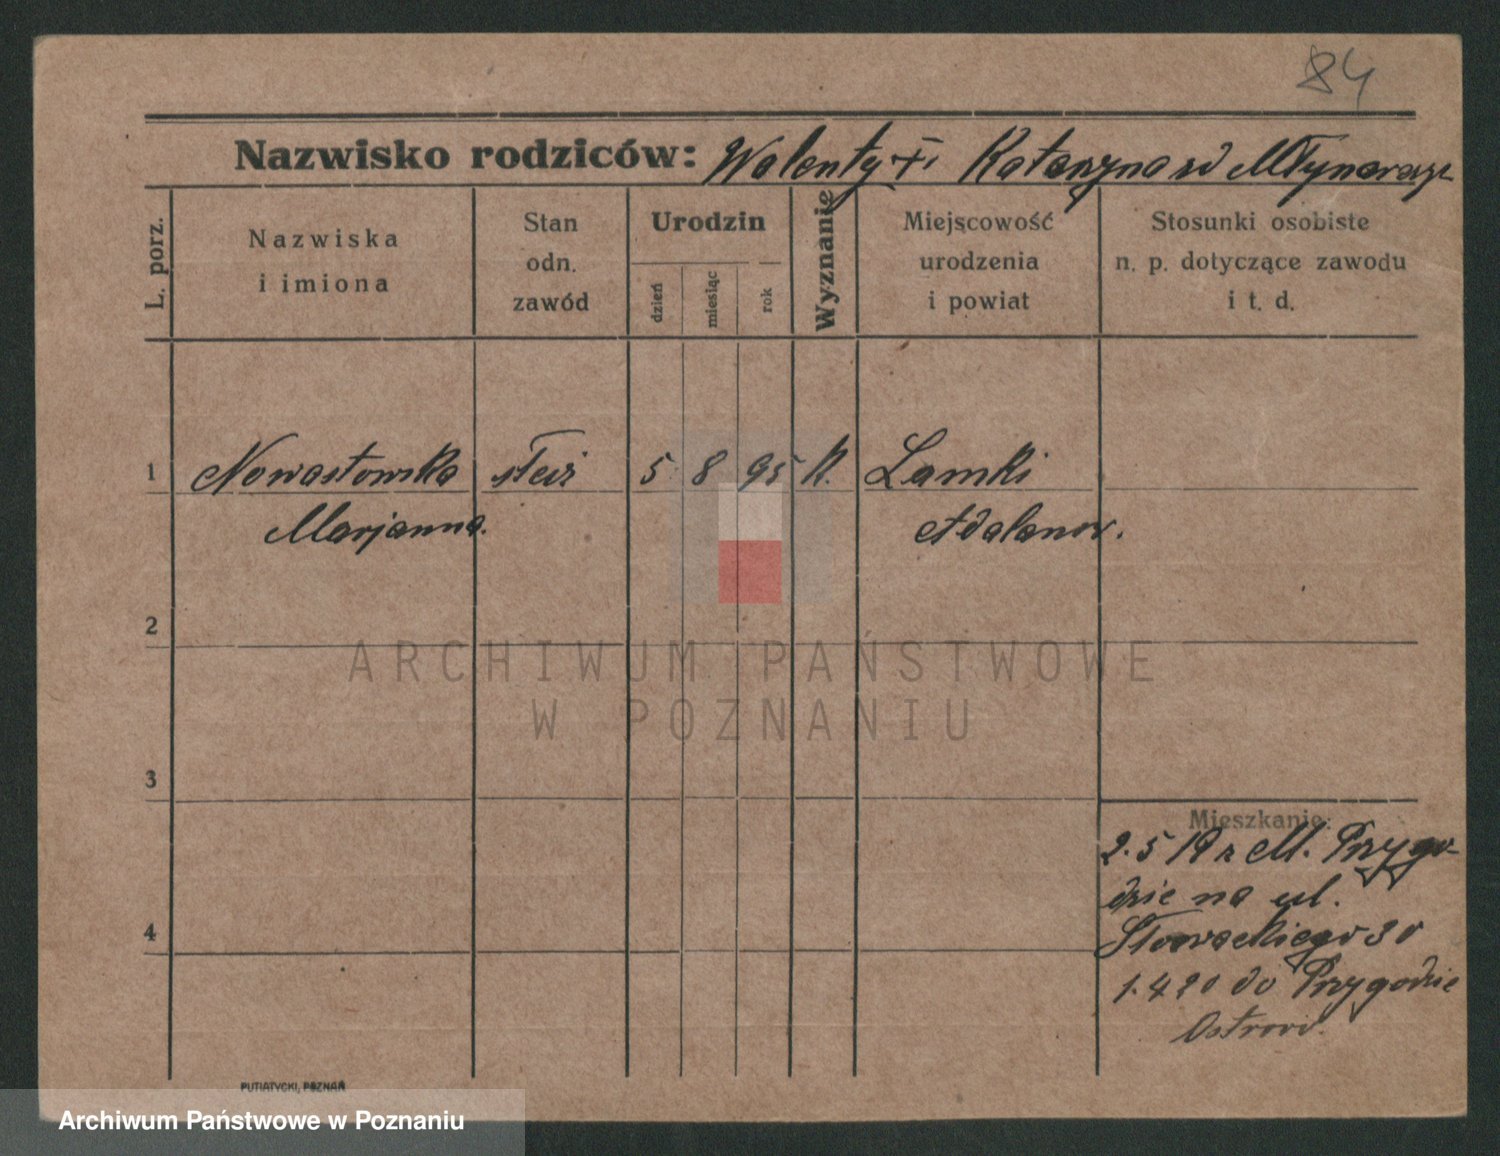 84
Nazwisko rodziców: Walenty + i Katarzyna zd Młynarczyk
L. porz.
Nazwiska
i imiona
Stan
odn.
zawód
Urodzin
dzień
miesiąc
rok
Wyznanie
Miejscowość
urodzenia
i powiat
Stosunki osobiste
n. p. dotyczące zawodu
i t. d.
1 Nowastowska 5 8 95 k. Lamki
Marjanna. Adalanow.
2
3
4
Mieszkanie:
2. 5 19 z M. Przygo-
dzic na ul.
Słowackiego 30
1. 4 20 do Przygodzic
Ostrow.
PUTIATYCKI, POZNAŃ
ARCHIWUM PAŃSTWOWE
W POZNANIU
Archiwum Państwowe w Poznaniu